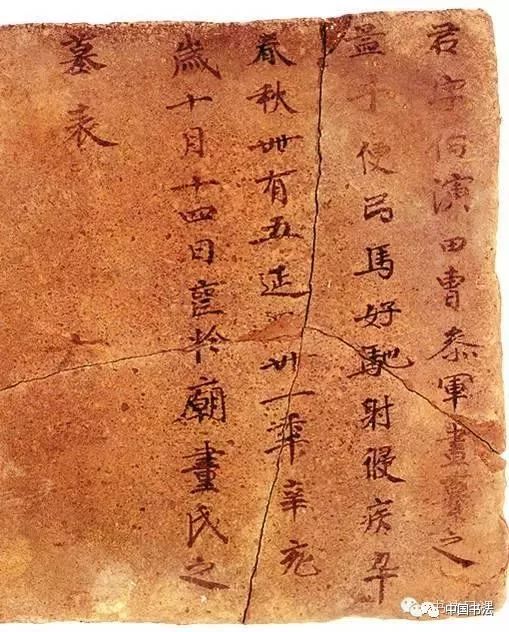 君字伯演田曹叅軍畫之
孟子便弓馬好馳射寑疾卒
春秋卅有五延卅一年辛亥
歲十月十四日喪於廟畫氏之
墓表
中国书法